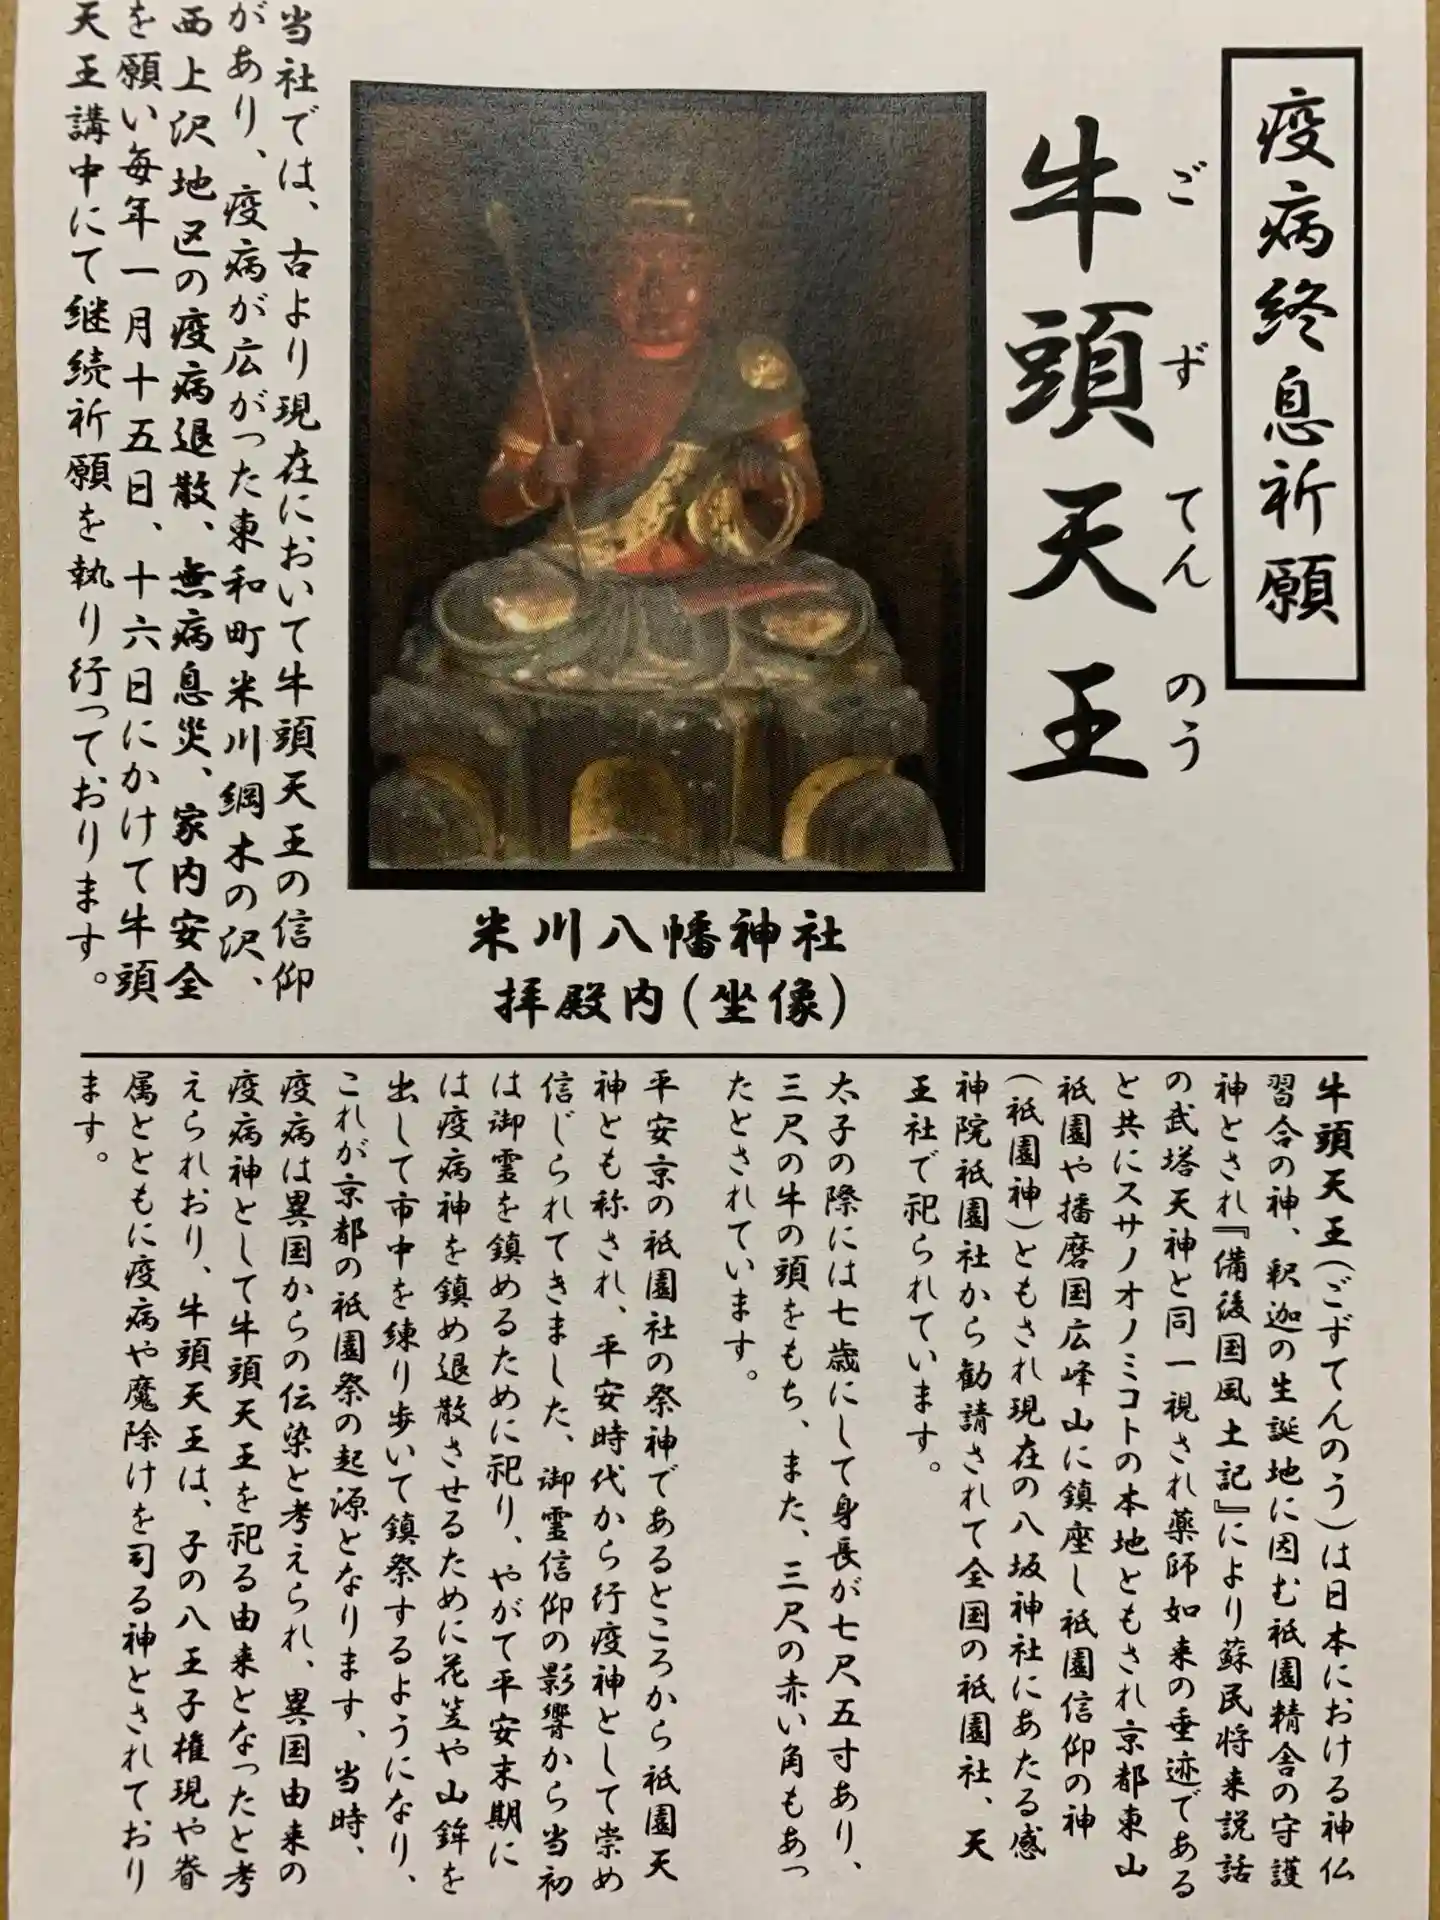 疫病終息祈願
牛頭天王
ごずてんのう
米川八幡神社
拝殿内(坐像)
当社では、古より現在において牛頭天王の信仰
があり、疫病が広がった東和町米川綱木の沢、
西上沢地区の疫病退散、無病息災、家内安全
を願い毎年一月十五日、十六日にかけて牛頭
天王講中にて継続祈願を執り行っております。
牛頭天王(ごずてんのう)は日本における神仏
習合の神、釈迦の生誕地に因む祇園精舎の守護
神とされ『備後国風土記』により蘇民将来説話
の武塔天神と同一視され薬師如来の垂迹である
と共にスサノオノミコトの本地ともされ京都東山
祇園や播磨国広峰山に鎮座し祇園信仰の神
(祇園神)ともされ現在の八坂神社にあたる感
神院祇園社から勧請されて全国の祇園社、天
王社で祀られています。
太子の際には七歳にして身長が七尺五寸あり、
三尺の牛の頭をもち、また、三尺の赤い角もあっ
たとされています。
平安京の祇園社の祭神であるところから祇園天
神とも称され、平安時代から行疫神として崇め
信じられてきました、御霊信仰の影響から当初
は御霊を鎮めるために祀り、やがて平安末期に
は疫病神を鎮め退散させるために花笠や山鉾を
出して市中を練り歩いて鎮祭するようになり、
これが京都の祇園祭の起源となります、当時、
疫病は異国からの伝染と考えられ、異国由来の
疫病神として牛頭天王を祀る由来となったと考
えられおり、牛頭天王は、子の八王子権現や眷
属とともに疫病や魔除けを司る神とされており
ます。